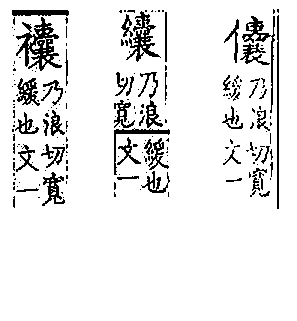 儾
乃浪切寬
緩也文一
乃浪
切寬
緩也
文一
乃浪切寬
緩也文一